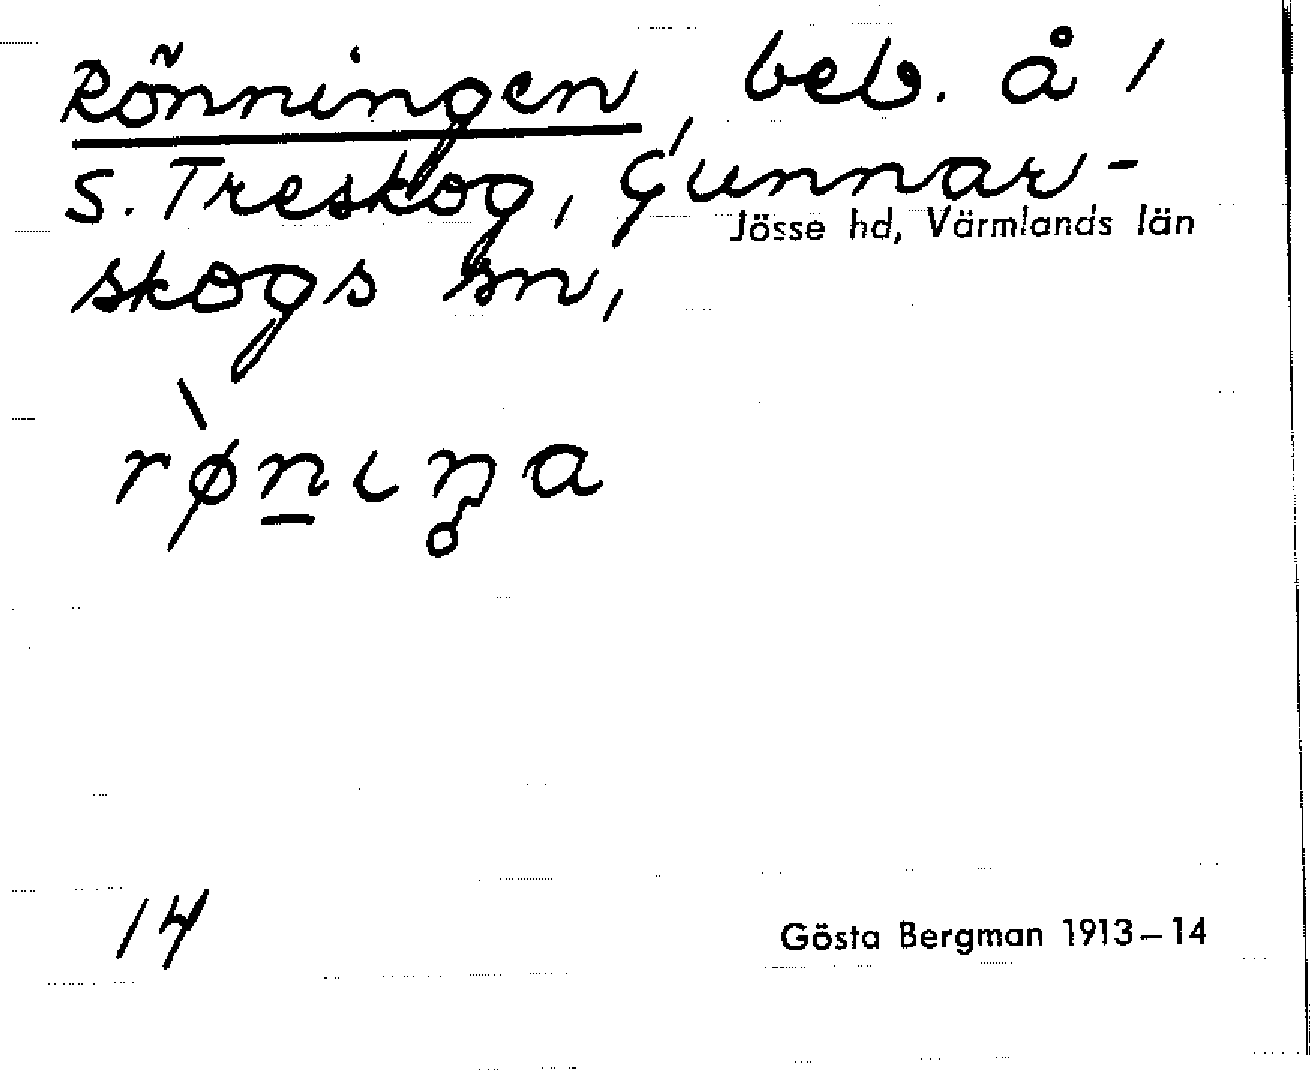 Rönningen, beb. å 1
S. Treskog, Gunnar-
Jösse hd, Värmlands län
skogs sn,
14
Gösta Bergman 1913–14